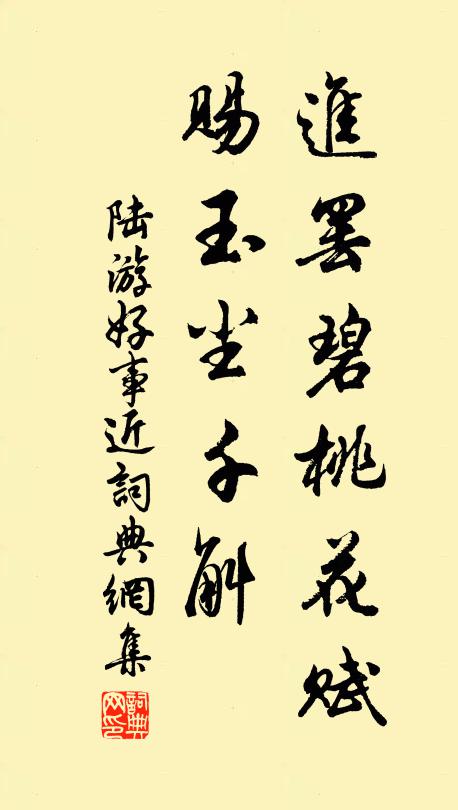 進罷碧桃花賦
賜玉尘千斛
陆游好事近詞典網集
詞典网印